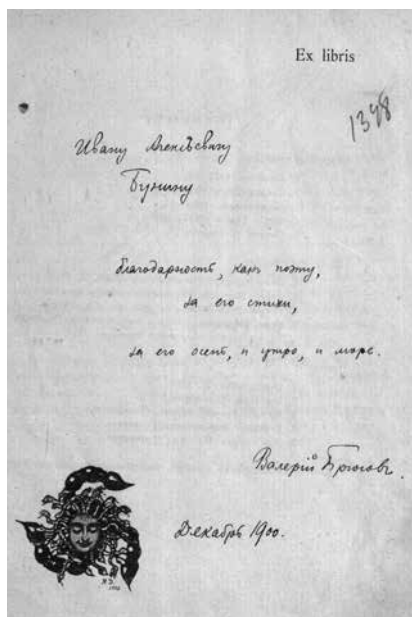 Ex libris
1348
Ивану Алексѣевичу
Бунину
благодарность, какъ поэту,
за его стихи,
за его осень, и утро, и море.
Валерій Брюсовъ
Декабрь 1900.